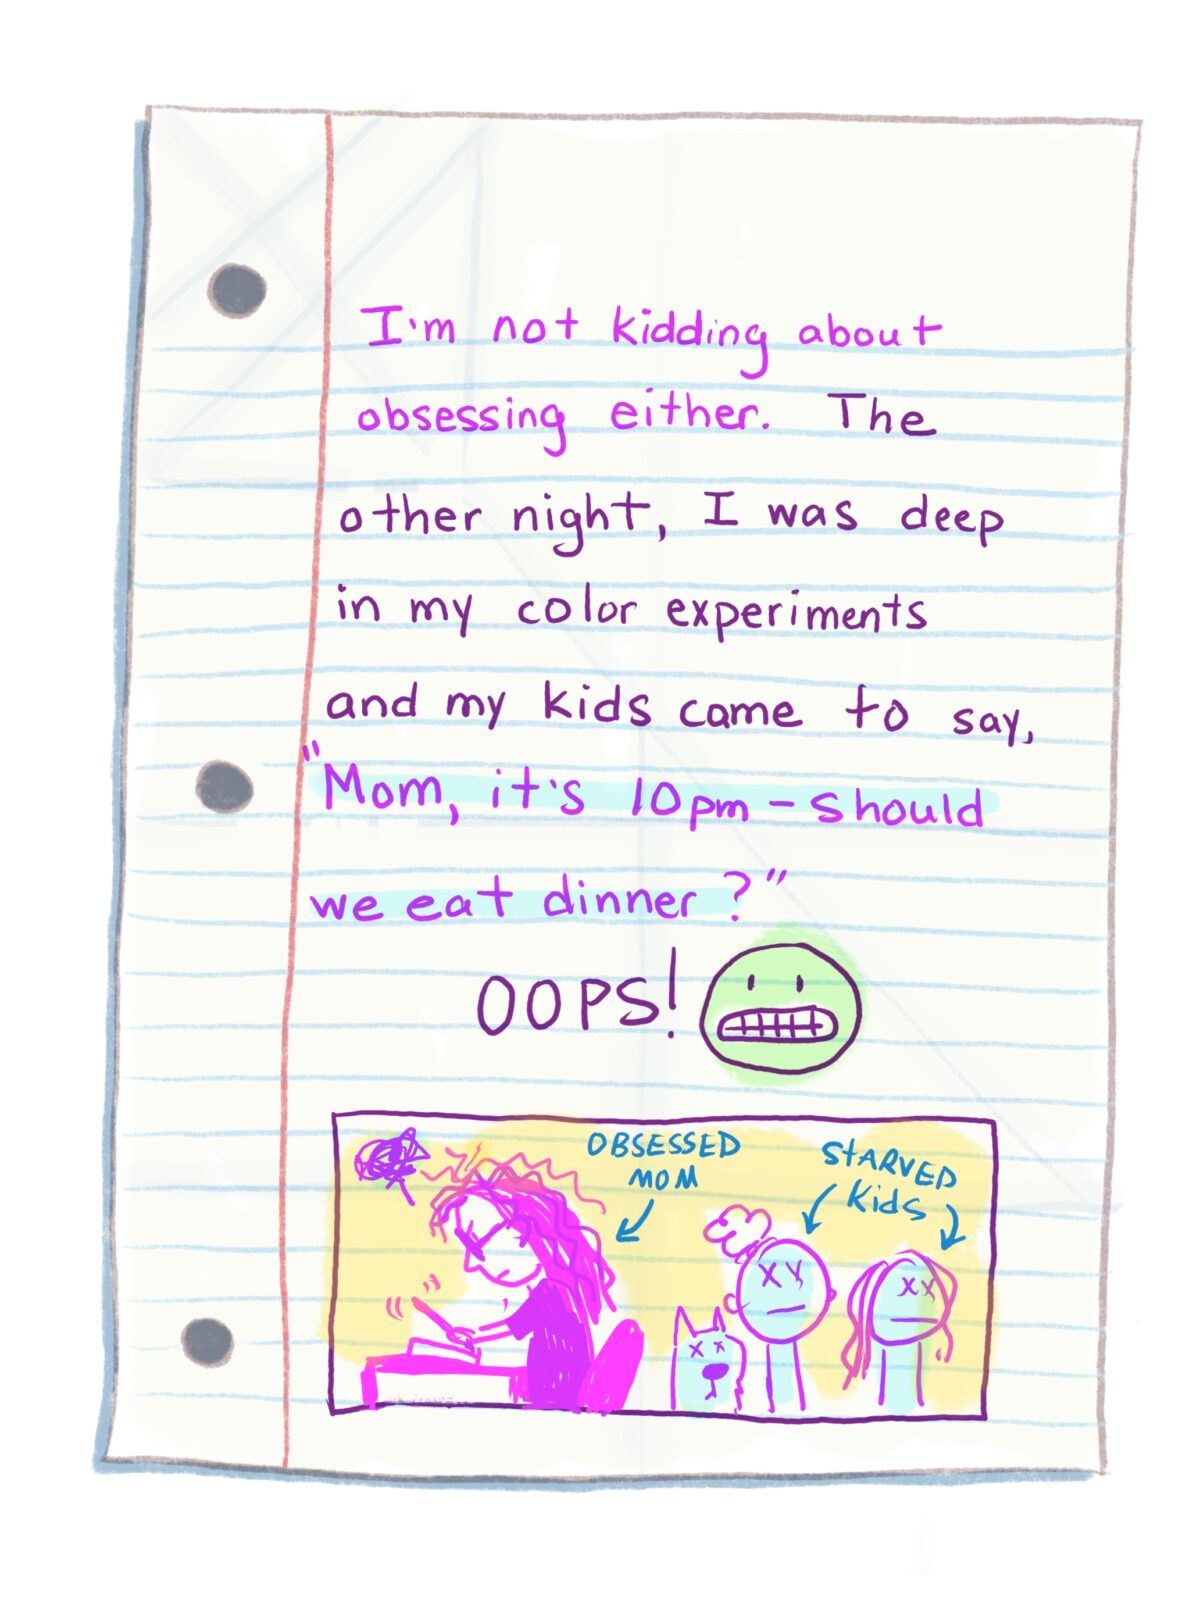 I'm not kidding about
obsessing either. The
other night, I was deep
in my color experiments
and my kids came to say,
"Mom, it's 10pm – should
we eat dinner?"
OOPS!
OBSESSED
MOM
STARVED
Kids